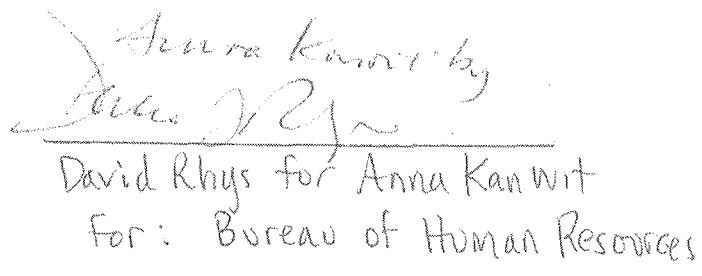 Anna Kanwit by
David Rhys
David Rhys for Anna Kanwit
For: Bureau of Human Resources